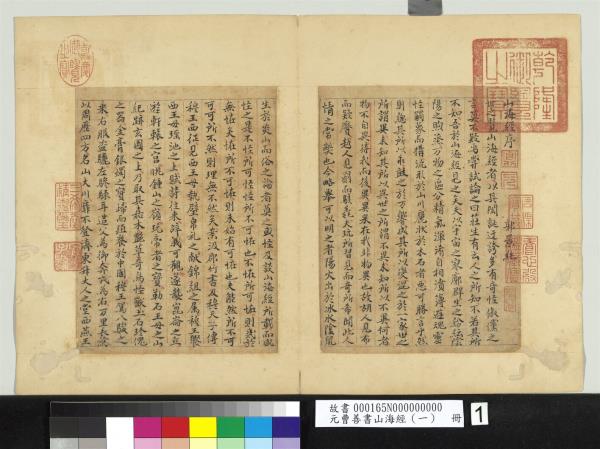 山海經序 郭景純
世之覽山海經者皆以其閎誕迂誇多有奇怪俶儻之
言莫不疑焉嘗試論之曰莊生有云人之所知不若其所
不知吾於山海經見之矣夫以宇宙之寥廓群生之紛紜陰
陽之煦蒸萬物之區分精氣渾淆自相濆薄遊魂靈
怪觸象而構流形於山川麗狀於木石者惡可勝言乎然
則總其所以乖鼓之於一響成其所以變混之於一象世之
所謂異未知其所以異世之所謂不異未知其所以不異何者
物不自異待我而後異異果在我非物異也故胡人見布
而疑黂越人見罽而駭毳夫玩所習見而奇所希聞此人
情之常蔽也今略舉可以明之者陽火出於冰水陰鼠
生於炎山而俗之論者莫之或怪及談山海經所載而咸
怪之是不怪所可怪而怪所不可怪也不怪所可怪則幾於
無怪矣怪所不可怪則未始有可怪也夫能然所不可
可所不然則理無不然矣案汲郡竹書及穆天子傳
穆王西征見西王母執璧帛之好獻錦組之屬穆王饗
西王母瑤池之上賦詩往來辭義可觀遂襲崑崙之丘
遊軒轅之宮眺鍾山之嶺玩帝者之寶勒石王母之山
紀跡玄圃之上乃取其嘉木豔草奇鳥怪獸玉石珍瑰
之器金膏銀燭之寶歸而殖養於中國穆王駕八駿之
乘右服盜驪左驂騄耳造父為御奔戎為右萬里長鶩
以周歷四方名山大川靡不登濟東升大人之堂西燕王
乾隆御覽之寶
故書 000165N000000000
元曹善書山海經(一) 冊 1